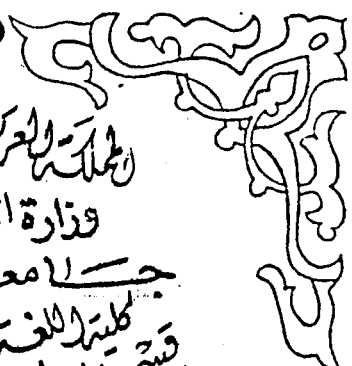 المملكة العر
وزارة ا
جامعة
كلية اللغة
قسم